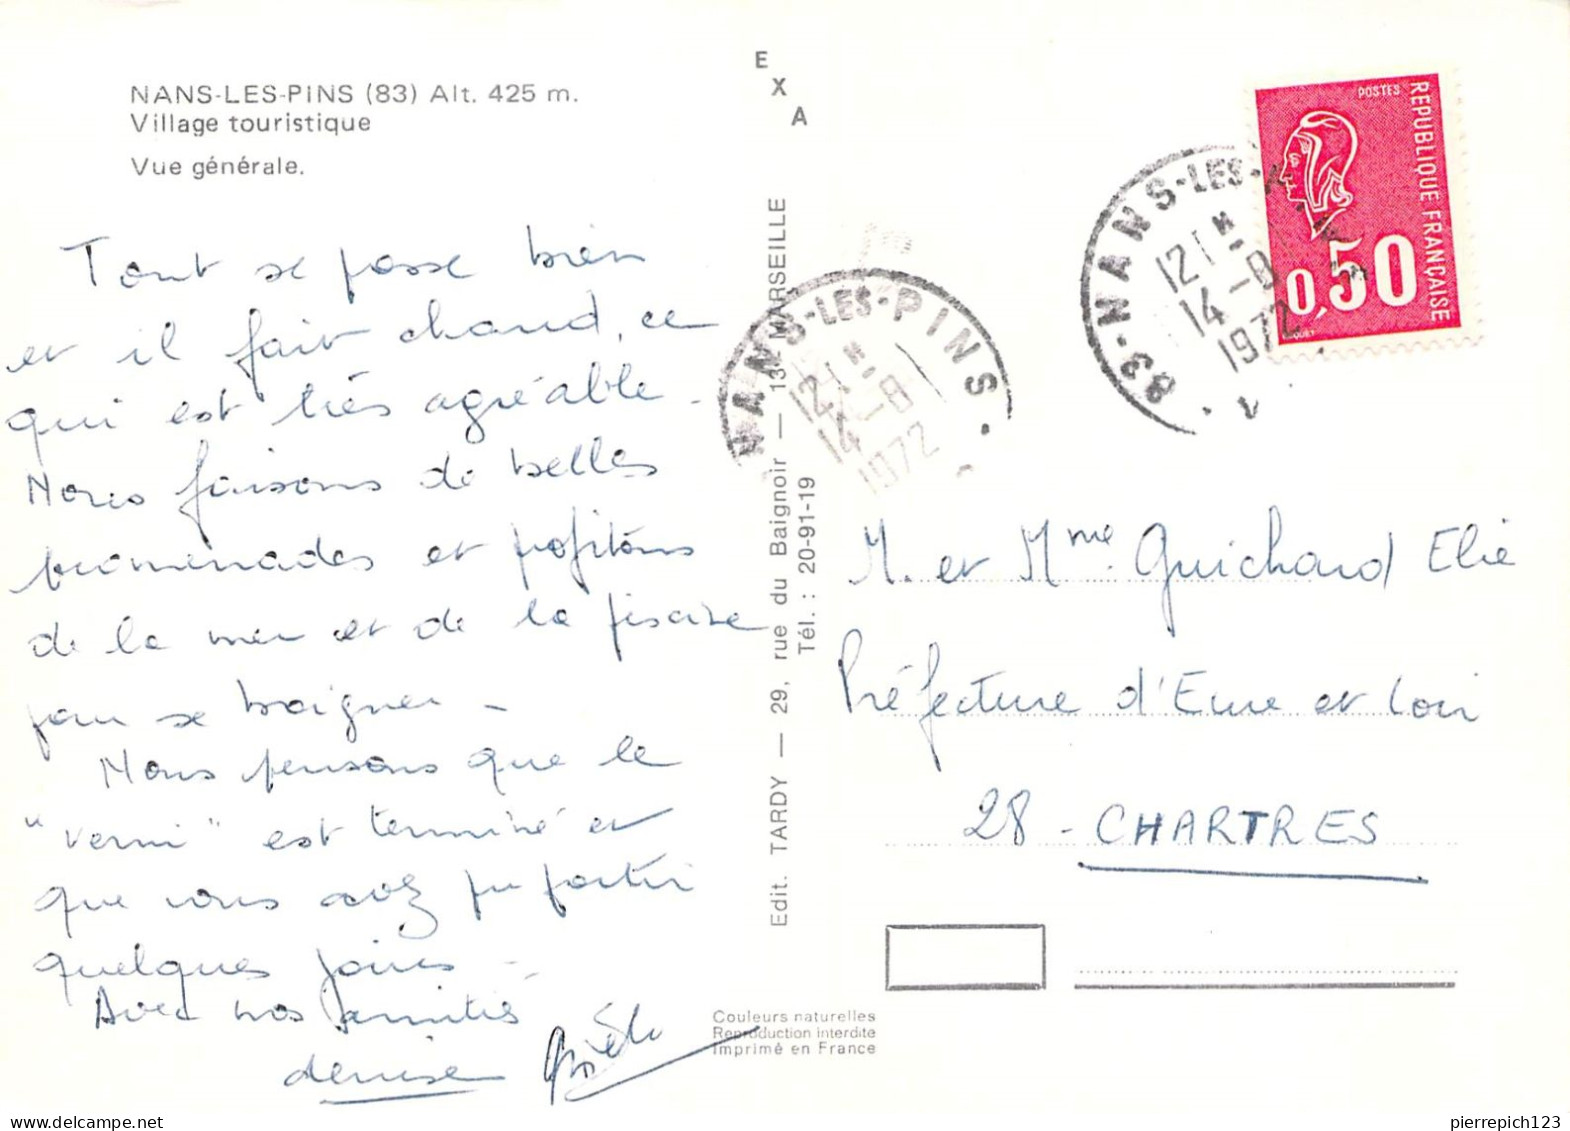 NANS-LES-PINS (83) Alt. 425 m.
Village touristique
Vue générale.
Tout se passe bien
et il fait chaud, ce
qui est très agréable -
Nous faisons de belles
promenades et profitons
de la mer et de la piscine
pour se baigner -
Nous pensons que le
"verni" est terminé et
que vous avez pu partir
quelques jours -
Avec nos amitiés
denise
EXA
Edit. TARDY — 29, rue du Baignoir — 13 MARSEILLE
Tél. : 20-91-19
NANS-LES-PINS
12H
14-8
1972
83-NANS-LES-
12H
14-8
1972
POSTES
REPUBLIQUE FRANÇAISE
0,50
M. et Mme Guichard Elie
Préfecture d'Eure et Loir
28 - CHARTRES
Couleurs naturelles
Reproduction interdite
Imprimé en France
pierrepich123